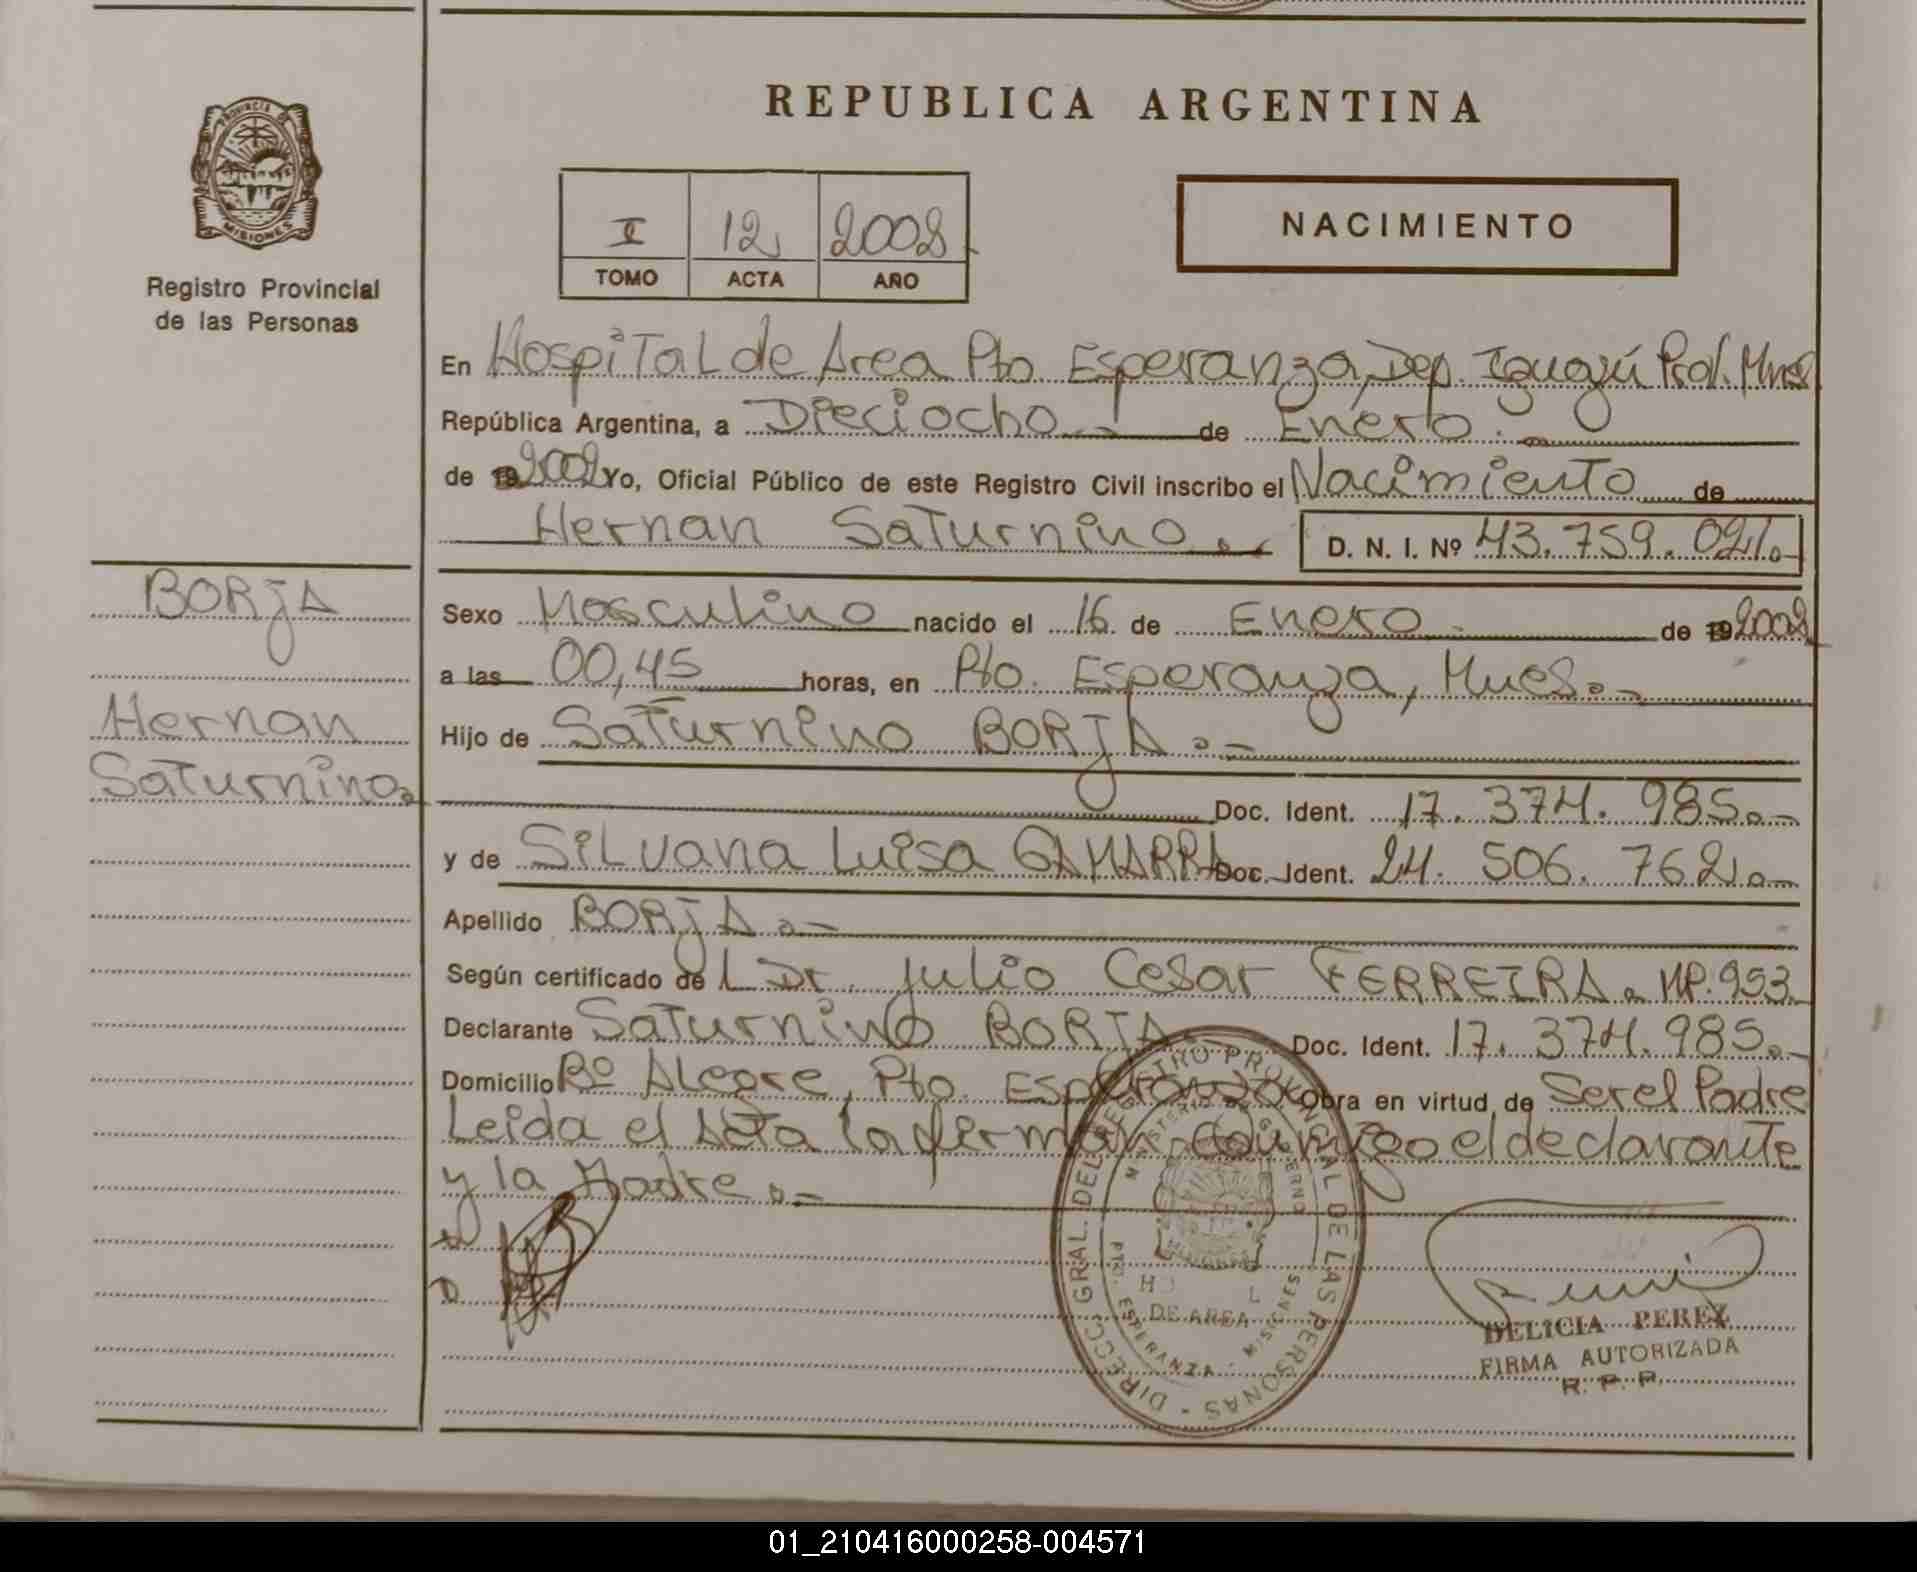 REPUBLICA ARGENTINA
PROVINCIA DE
MISIONES
Registro Provincial
de las Personas
NACIMIENTO
I 12 2002
TOMO ACTA AÑO
En Hospital de Area Pto Esperanza, Dep. Iguazú Prov. Mnes
República Argentina, a Dieciocho.- de Enero.-
de 2002 Yo, Oficial Público de este Registro Civil inscribo el Nacimiento de
Hernan Saturnino.- D. N. I. Nº 43.759.021.-
BORJA
Hernan
Saturnino.
Sexo Masculino nacido el 16 de Enero.- de 2002
a las 00,45 horas, en Pto. Esperanza, Mnes.-
Hijo de Saturnino BORJA.-
Doc. Ident. 17.374.985.-
y de Silvana Luisa GAMARRA Doc. Ident. 24.506.762.-
Apellido BORJA.-
Según certificado del Dr. Julio Cesar FERREIRA. MP.953.
Declarante Saturnino BORJA Doc. Ident. 17.374.985.-
Domicilio Bº Alegre, Pto. Esperanza Obra en virtud de Ser el Padre
Leida el Acta la firman conmigo el declarante
y la Madre.-
DIRECC. GRAL. DEL REGISTRO PROVINCIAL DE LAS PERSONAS -
MINISTERIO DE GOBIERNO
DE AREA
PTO. ESPERANZA - MISIONES
DELICIA PEREZ
FIRMA AUTORIZADA
R. P. P.
01_210416000258-004571